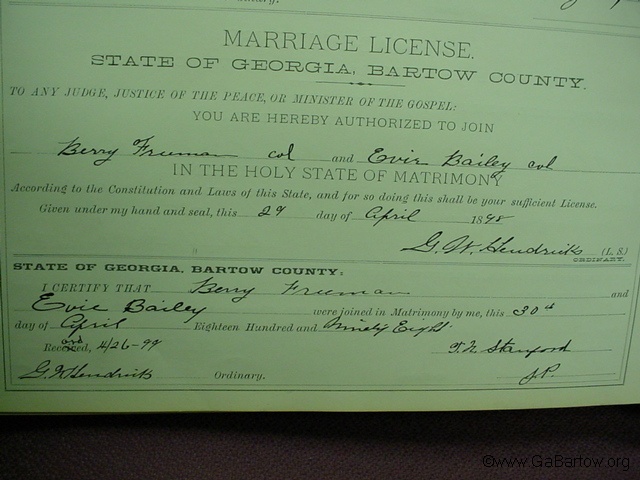 MARRIAGE LICENSE.
STATE OF GEORGIA, BARTOW COUNTY.
TO ANY JUDGE, JUSTICE OF THE PEACE, OR MINISTER OF THE GOSPEL:
YOU ARE HEREBY AUTHORIZED TO JOIN
Berry Freeman col and Evie Bailey col
IN THE HOLY STATE OF MATRIMONY
According to the Constitution and Laws of this State, and for so doing this shall be your sufficient License.
Given under my hand and seal, this 29 day of April 1898
G. W. Hendricks (L. S.)
ORDINARY.
STATE OF GEORGIA, BARTOW COUNTY:
I CERTIFY THAT Berry Freeman and
Evie Bailey were joined in Matrimony by me, this 30th
day of April Eighteen Hundred and Ninety Eight
4/26-99
J.P.
G. W. Hendricks Ordinary.
©www.GaBartow.org